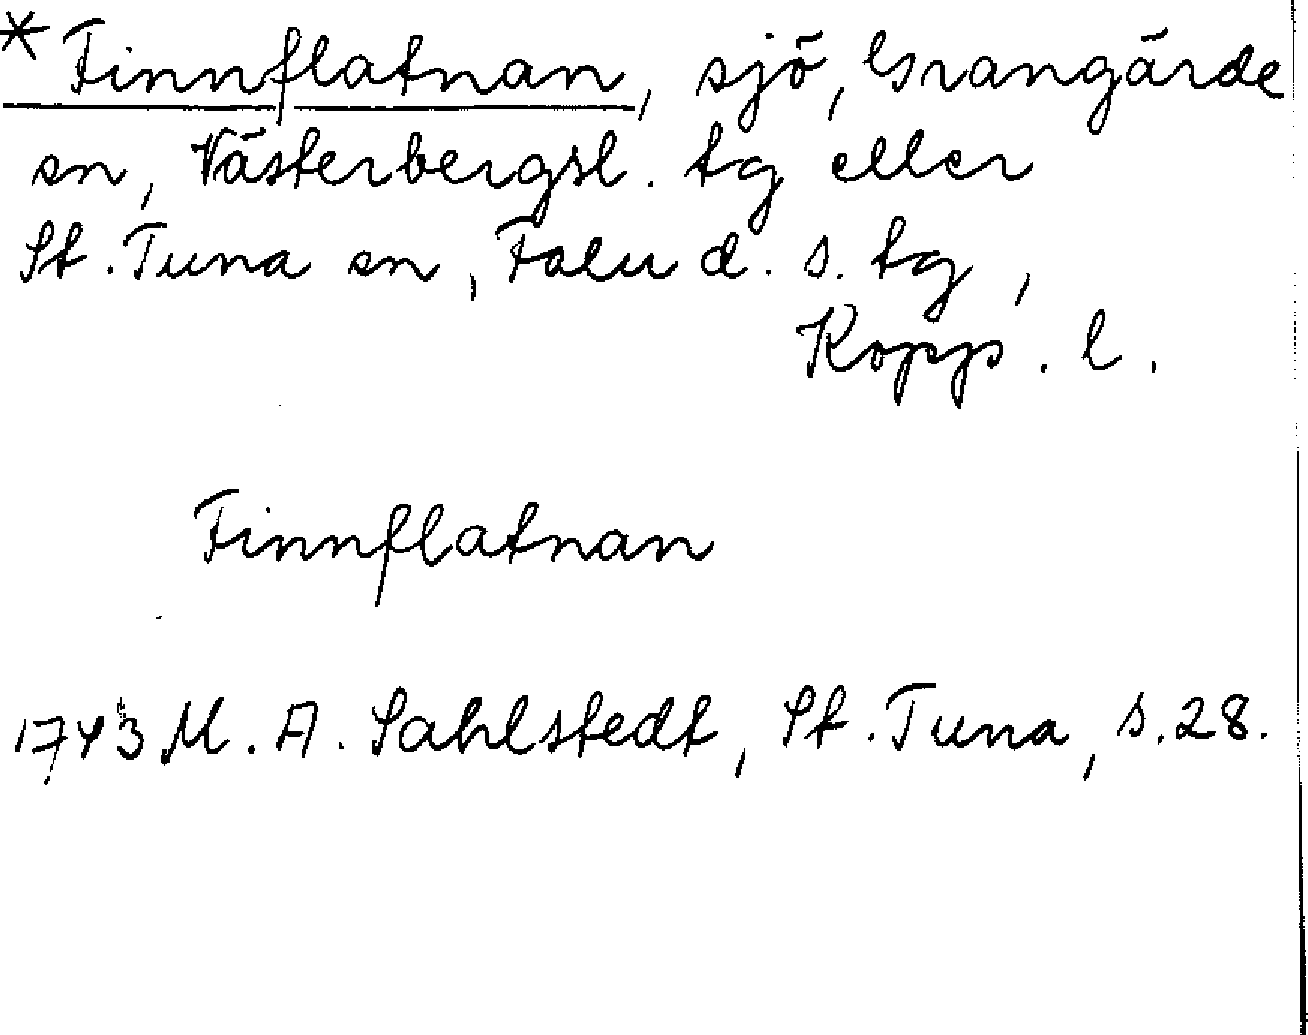 *Finnflatnan, sjö, Grangärde
sn, Västerbergsl. tg eller
St. Tuna sn, Falu d. s. tg,
Kopp. l.
Finnflatnan
1743 M. A. Sahlstedt, St. Tuna, s. 28.